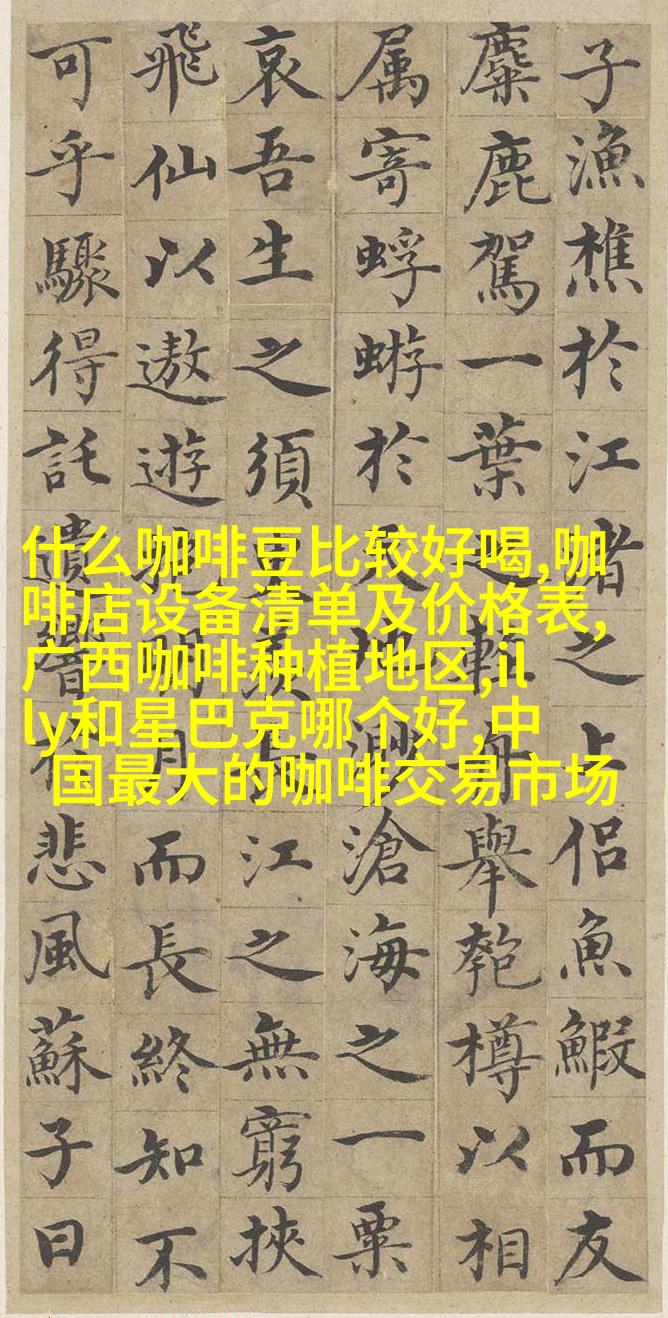 什么咖啡豆比较好喝,咖
啡店设备清单及价格表,
广西咖啡种植地区,il
ly和星巴克哪个好,中
国最大的咖啡交易市场
子漁樵於江渚之上侣魚鰕而友
麋鹿駕一葉之輕舟舉匏樽以相
属寄蜉蝣於天地渺滄海之一粟
哀吾生之須臾羡長江之無窮挾
飛仙以遨遊抱明月而長終知不
可乎驟得託遺響於悲風蘇子曰